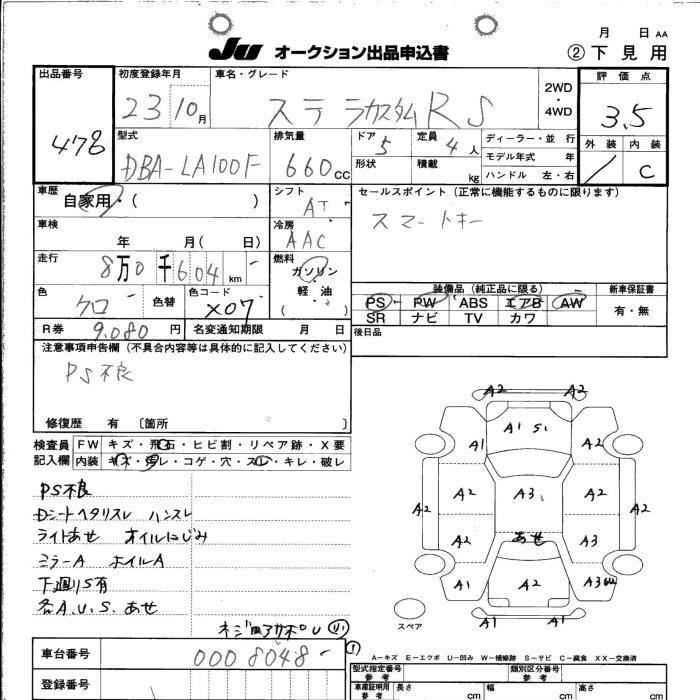 月 日 AA
JU オークション出品申込書 ②下見用
出品番号 478
初度登録年月 23 10月
車名・グレード ステラカスタムRS
2WD・4WD
評価点 3.5
外装 内装 C
型式 DBA-LA100F
排気量 660 cc
ドア 5 定員 4 人
形状 積載 kg
ディーラー・並行
モデル年式 年
ハンドル 左・右
車歴 自家用・( )
シフト AT
セールスポイント (正常に機能するものに限ります)
スマートキー
車検 年 月( 日)
冷房 AAC
走行 8万0千604 km
燃料 ガソリン・軽油・( )
色 クロ 色替 色コード X07
装備品 (純正品に限る) 新車保証書
PS PW ABS エアB AW 有・無
SR ナビ TV カワ
R券 9,080 円 名変通知期限 月 日
後日品
注意事項申告欄 (不具合内容等は具体的に記入してください)
PS不良
修復歴 有 〔箇所 〕
検査員記入欄
FW キズ・飛石・ヒビ割・リペア跡・X要
内装 キズ・汚レ・コゲ・穴・スレ・キレ・破レ
PS不良
Dシートヘタリスレ ハンスレ
ライトあせ オイルにじみ
ミラーA ホイルA
下廻りS有
各A.U.S.あせ
A2 A2
A1 A1 S1 A2
A2 A2 A3 A2 A2
A2 あせ A3
A1 A2 A3
A1 A1
スペア
A−キズ E−エクボ U−凹み W−補修跡 S−サビ C−腐食 XX−交換済
車台番号 0008048
登録番号
型式指定番号 参考 類別区分番号 参考
車庫証明用 参考 長さ cm 幅 cm 高さ cm